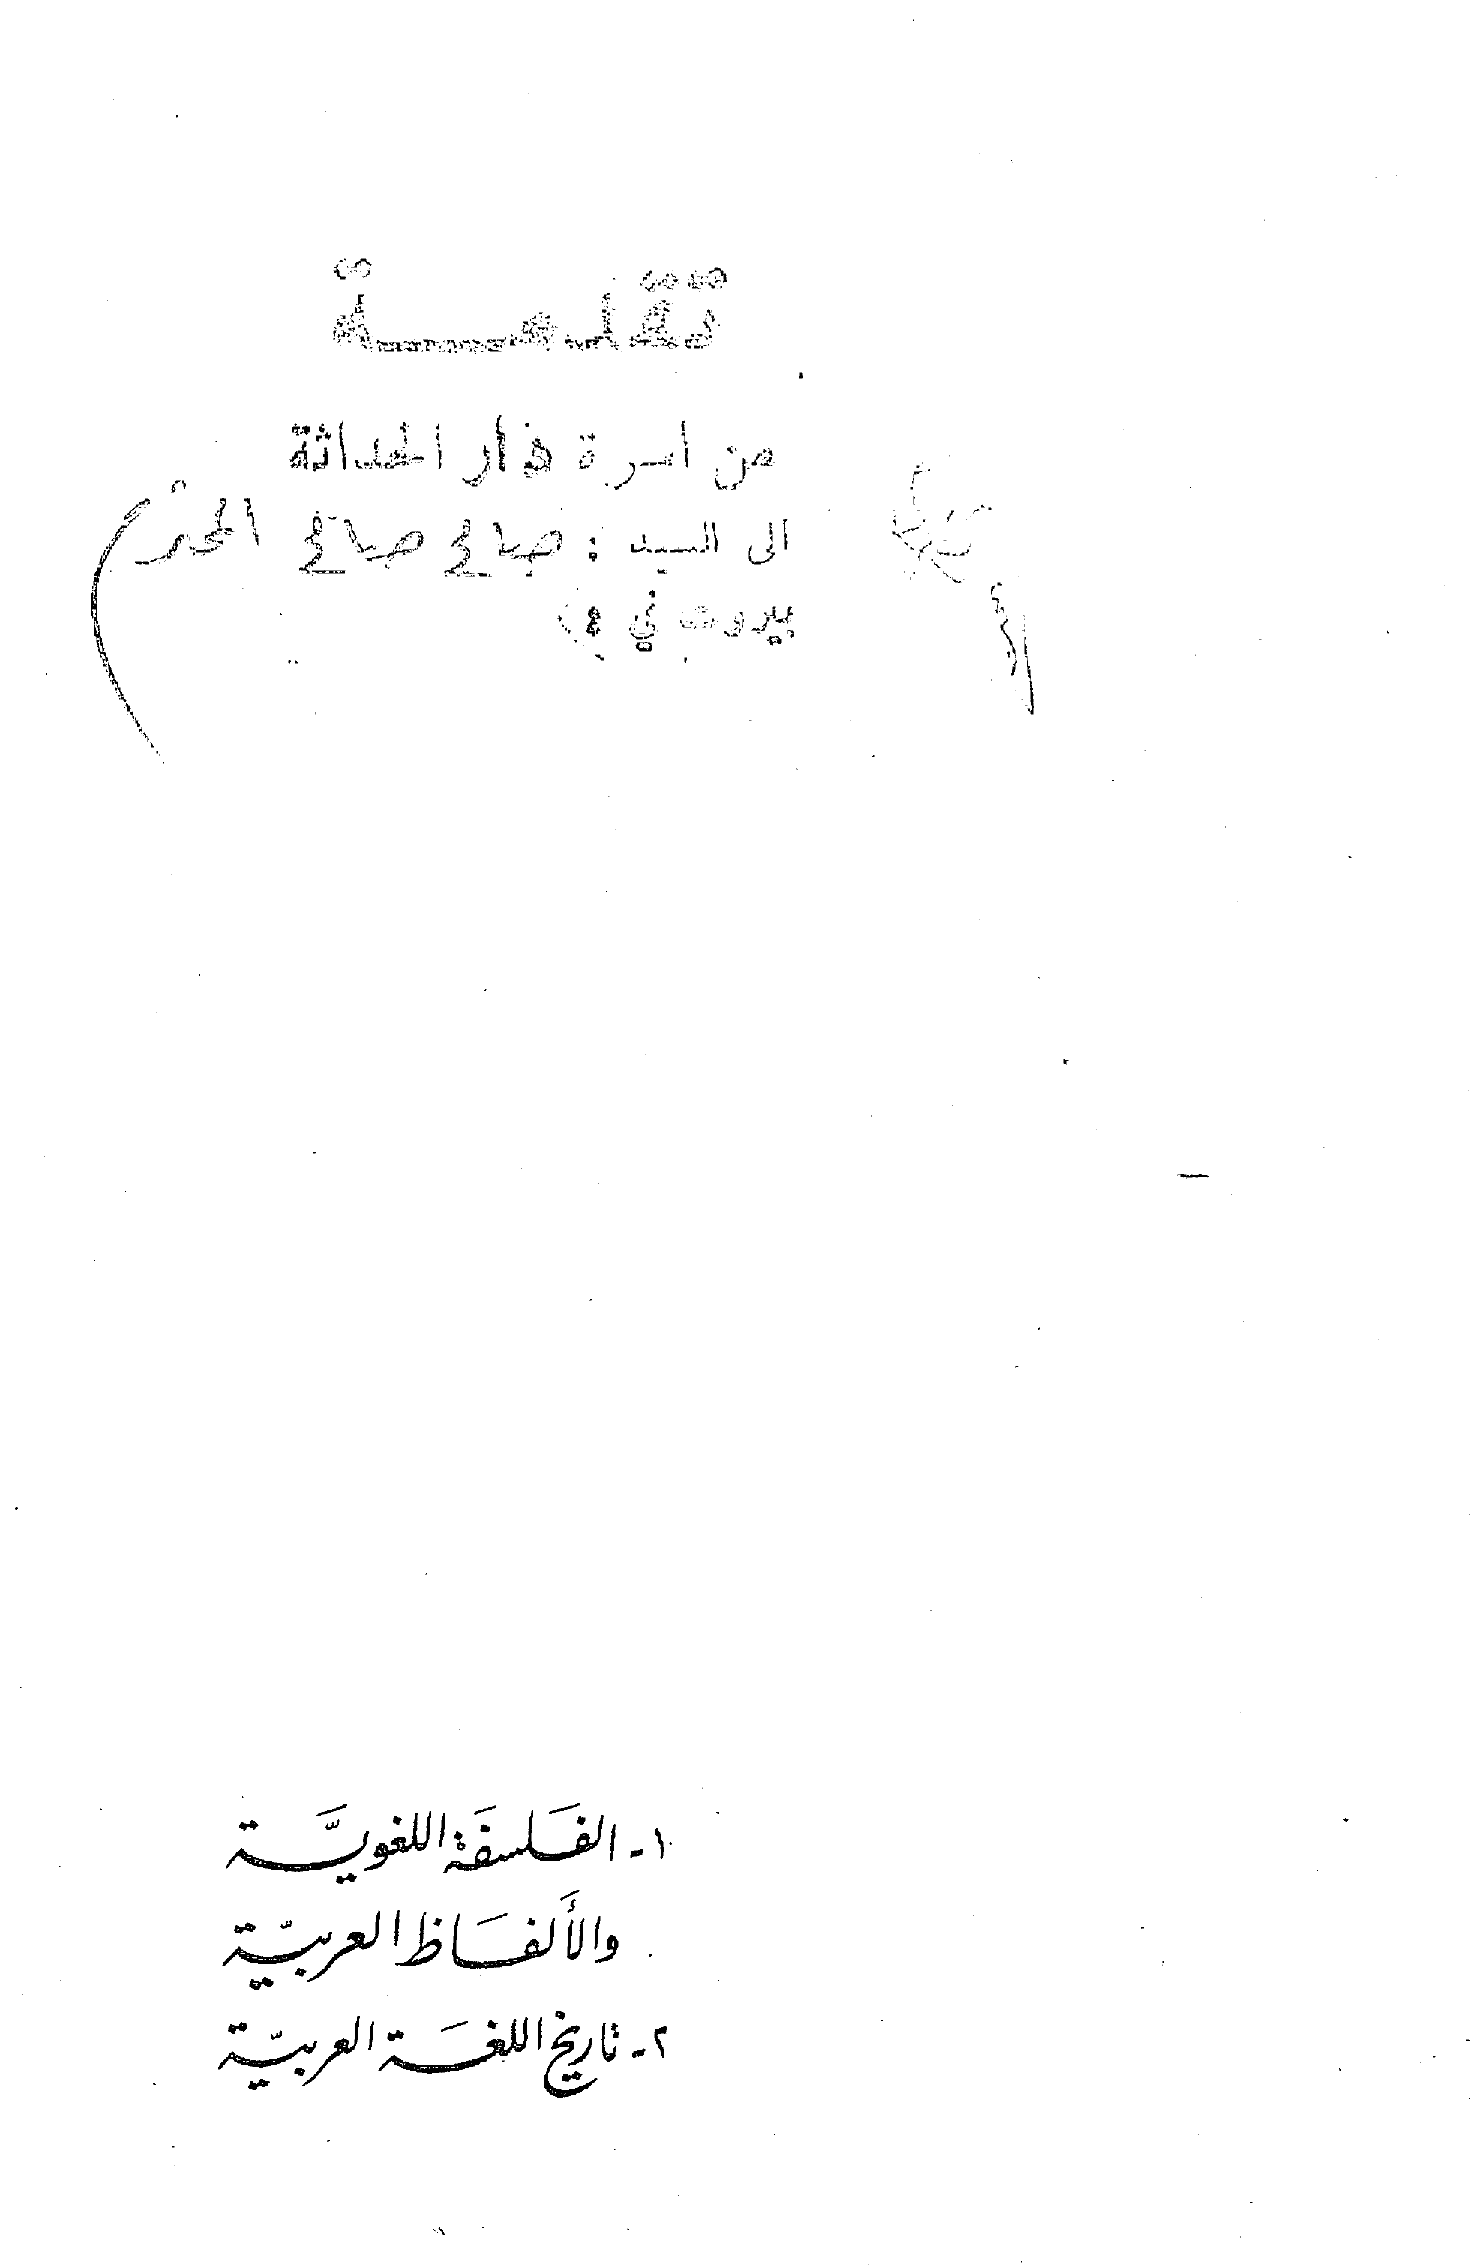 تقدمــــة
من اسرة دار الحداثة
الى السيد : صالح صالح المحترم
بيروت في
١- الفَلسَفَة اللغويَّـــة
والأَلفَــاظ العربيّة
٢- تاريخ اللغَــة العربيّة